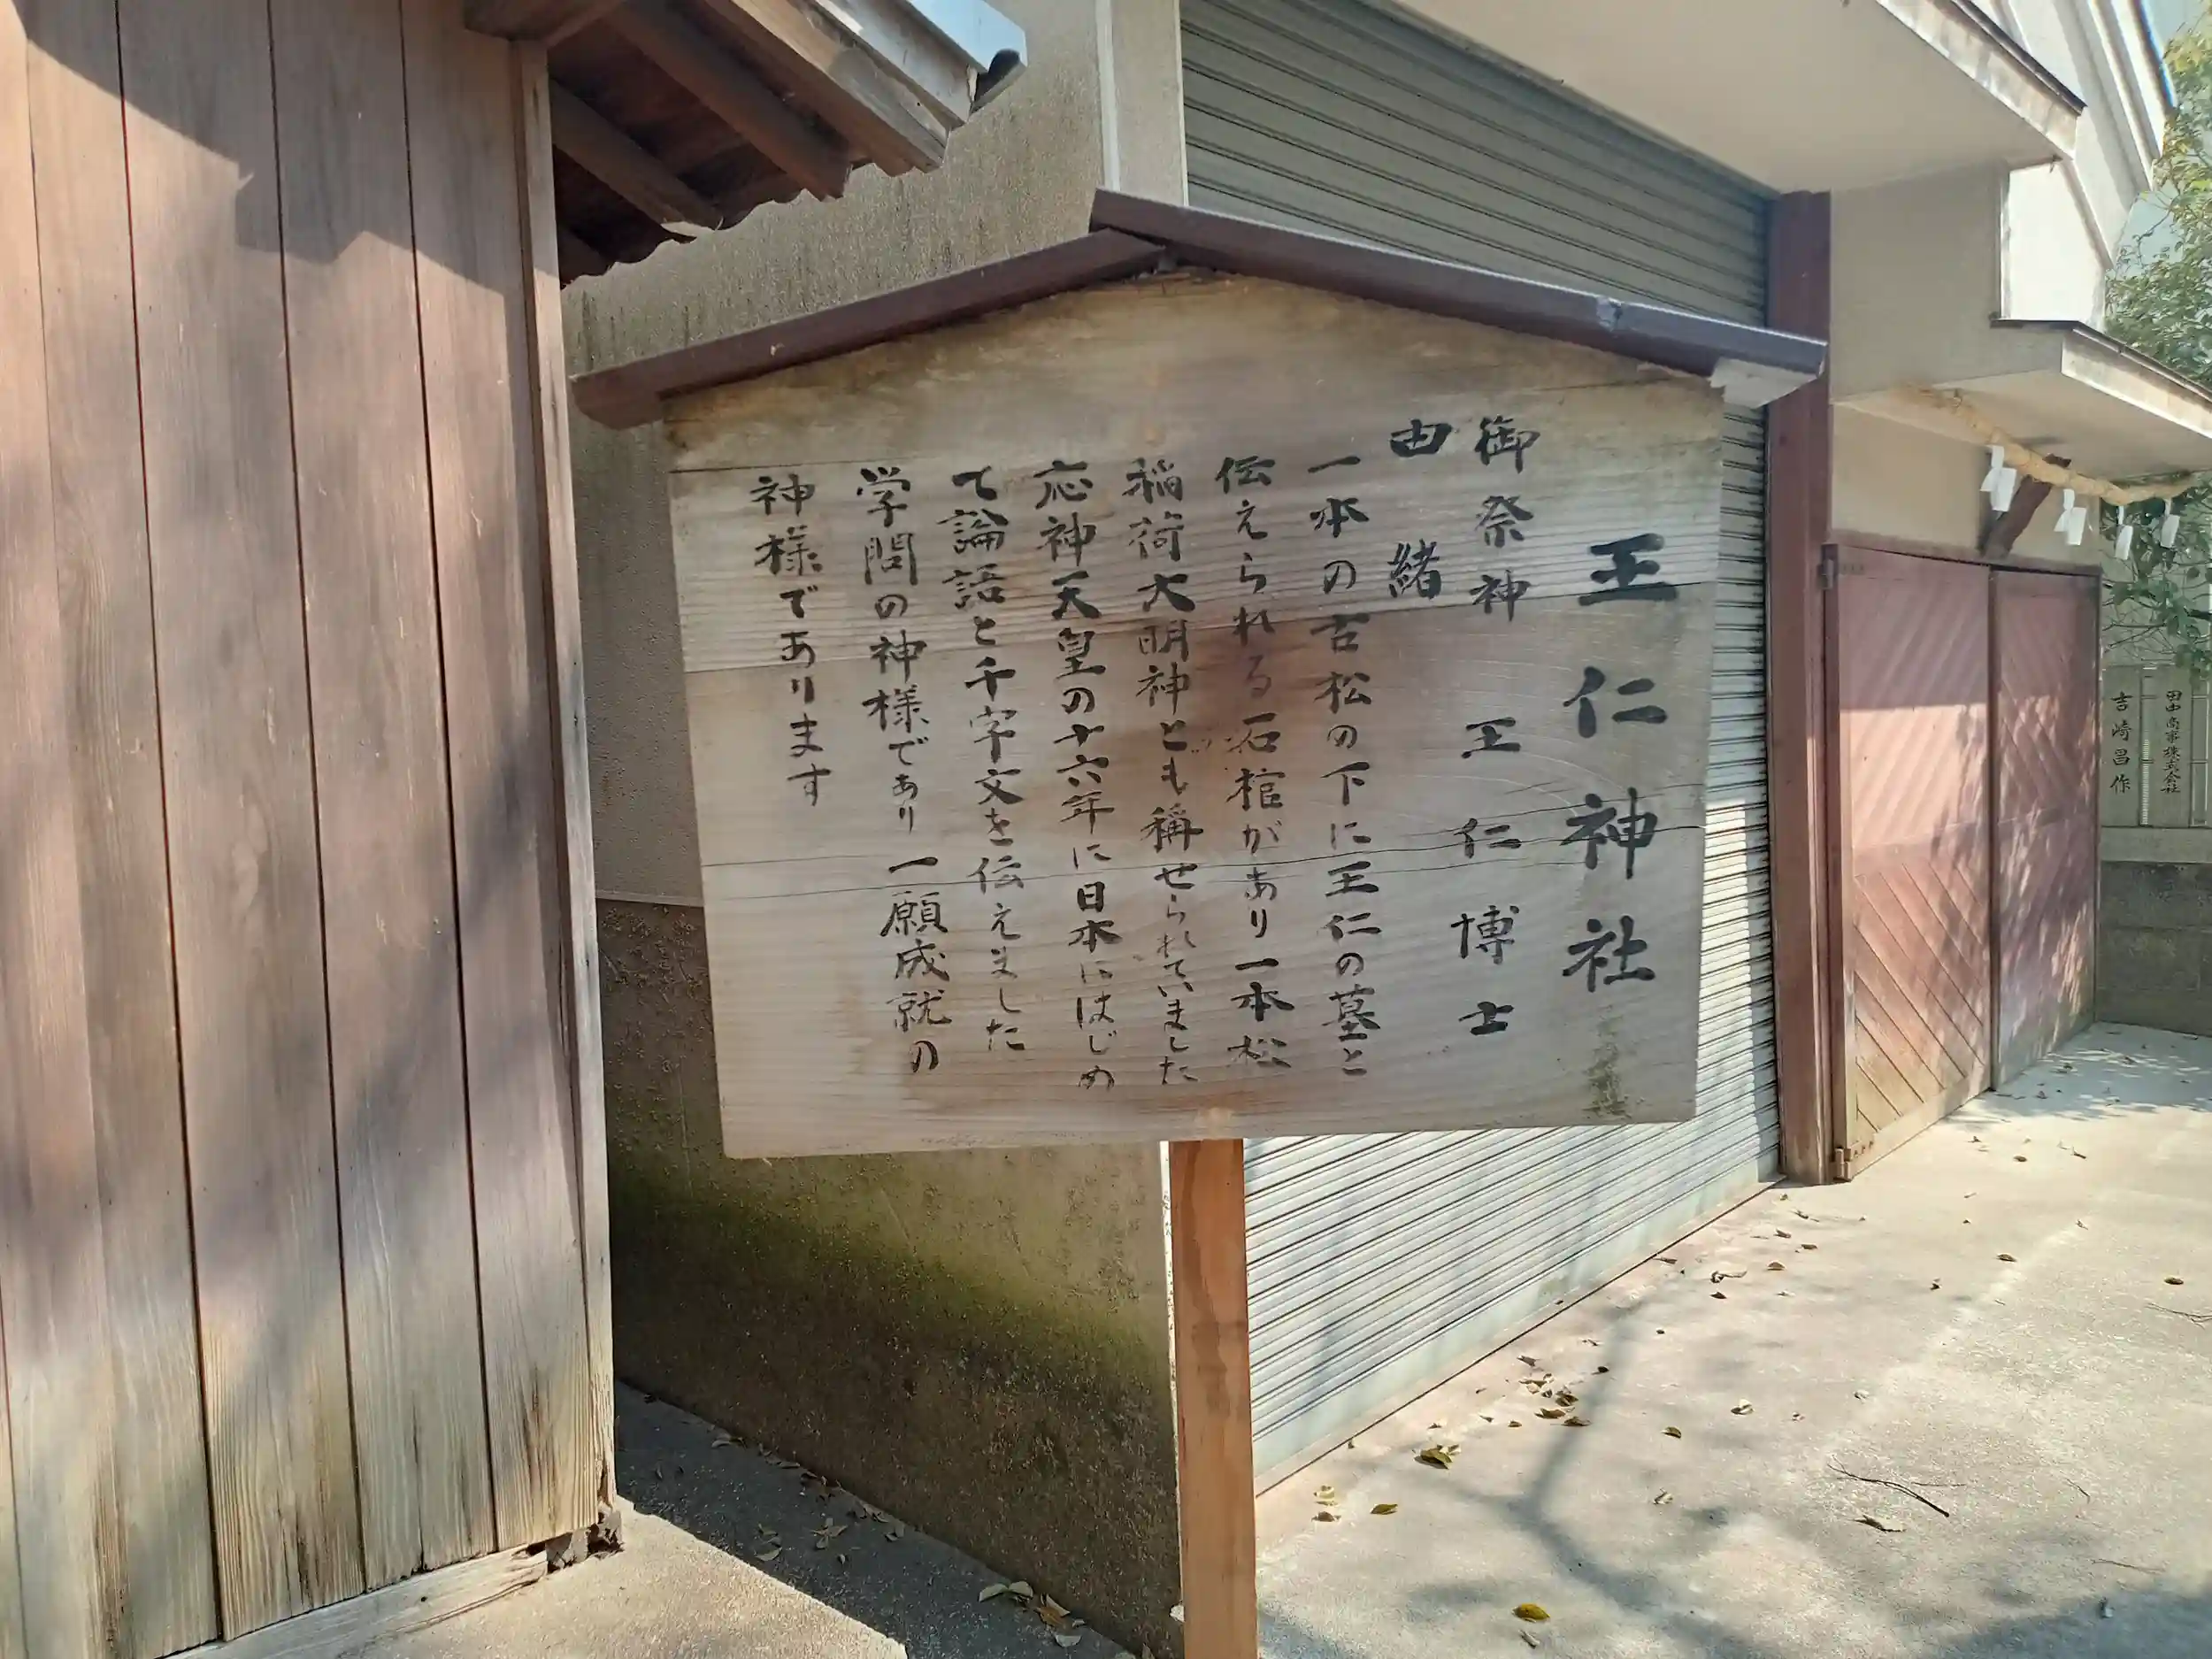 王仁神社
御祭神 王仁博士
由緒
一本の古松の下に王仁の墓と
伝えられる石棺があり一本松
稲荷大明神とも稱せられていました
応神天皇の十六年に日本にはじめ
て論語と千字文を伝えました
学問の神様であり一願成就の
神様であります
田中商事株式会社
吉崎昌作